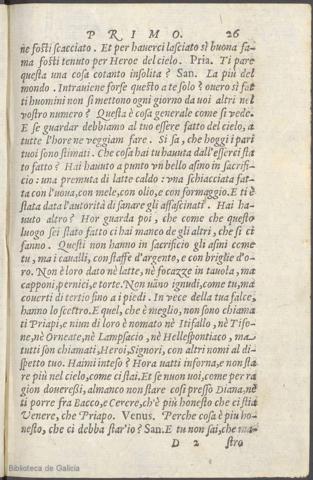 PRIMO. 26
ne fosti scacciato. Et per hauerci lasciato sì buona fa-
ma fosti tenuto per Heroe del cielo. Pria. Ti pare
questa una cosa cotanto insolita? San. La piu del
mondo. Intrauiene forse questo a te solo? ouero sì fat
ti huomini non si mettono ogni giorno da uoi altri nel
vostro numero? Questa è cosa generale come si vede.
E se guardar debbiamo al tuo essere fatto del cielo, a
tutte l'hore ne veggiam fare. Si sa, che hoggi i pari
tuoi sono stimati. Che cosa hai tu hauuta dall'esserci sta
to fatto? Hai hauuto a punto vn bello asino in sacrifi-
cio: una premuta di latte caldo: vna schiacciata fat-
ta con l'uoua, con mele, con olio, e con formaggio. E ti è
stata data l'autorità di sanare gli affascinati. Hai ha-
uuto altro? Hor guarda poi, che come che questo
luogo sei stato fatto ci hai manco de gli altri, che si ci
fanno. Questi non hanno in sacrificio gli asini come
tu, ma i caualli, con staffe d'argento, e con briglie d'o-
ro. Non è loro dato nè latte, nè focazze in tauola, ma
capponi, pernici, e torte. Non uãno ignudi, come tu, ma
couerti di tertio fino a i piedi. In vece della tua falce,
hanno lo scettro. E quel, che è meglio, non sono chiama
ti Priapi, e niun di loro è nomato nè Itifallo, nè Tifo-
ne, nè Orneate, nè Lampsacio, nè Hellespontiaco, ma
tutti son chiamati, Heroi, Signori, con altri nomi al di-
spetto tuo. Haimi inteso? Hora uatti inforna, e non sta
re più nel cielo, come ci stai. Et se nuon uoi, come per ra
gion doueressi, almanco non stare così presso Diana, ne
ti porre fra Bacco, e Cerere, ch'è più honesto che ci stia
Venere, che Priapo. Venus. Perche cosa è piu ho-
nesto, che ci debba star'io? San. E tu non sai, che ma-
D 2 stro
Biblioteca de Galicia